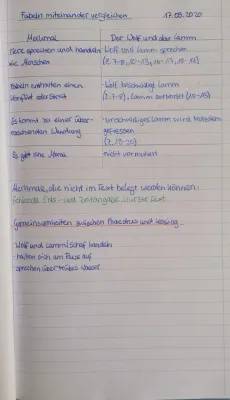 Fabeln miteinander vergleichen 17.09.2020
Merkmal Der Wolf und das Lamm
Tiere sprechen und handeln wie Menschen
- Wolf und Lamm sprechen
(Z. 7-8, 10-13,
Fabeln enthalten einen
Konflikt oder Streit
- Wolf beschuldigt Lamm
(Z. 7-8), Lamm antwortet (10-13)
Es kommt zu einer über-
raschenden Wendung
- unschuldiges Lamm wird trotzdem
gefressen
Es gibt eine
- nicht vorhanden
Merkmale, die nicht im Text belegt werden können:
fehlende Orts- und Zeitangabe, kurzer Text
Gemeinsamkeiten zwischen Phaedrus und Lessing
Wolf und Lamm/Schaf handeln
halten sich am Fluss auf
sprechen über trübes Wasser